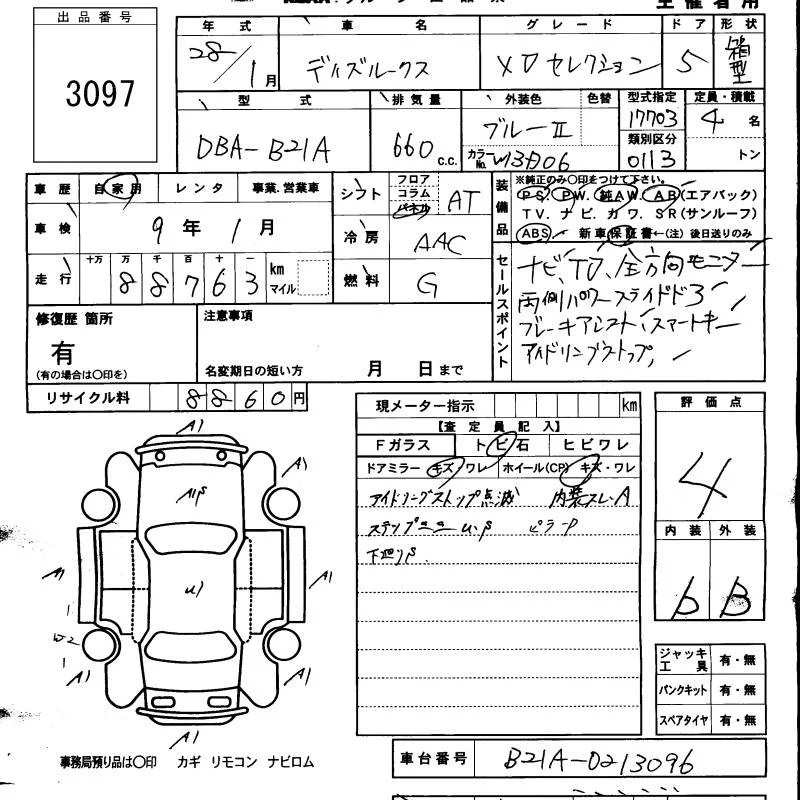 主催者用
出品番号 年式 車名 グレード ドア 形状
3097 28/1月 デイズルークス XDセレクション 5 箱型
型式 排気量 外装色 色替 型式指定 定員・積載
DBA-B21A 660 c.c. ブルーII 17703 4 名
カラーNo. 類別区分 0113 トン
車歴 自家用 レンタ 事業.営業車 シフト フロア コラム パネル AT
装備品 ※純正のみ〇印をつけて下さい。
PS. PW. 純AW. AB(エアバック)
TV. ナビ. カワ. SR(サンルーフ)
ABS 新車保証書←(注)後日送りのみ
車検 9年 1月 冷房 AAC
走行 十万 万 千 百 十 一 88763 km マイル 燃料 G
セールスポイント ナビ、TV、全方向モニター
両側パワースライドドア
ブレーキアシスト、スマートキー
アイドリングストップ,
修復歴 箇所 注意事項
有
(有の場合は〇印を) 名変期日の短い方 月 日まで
リサイクル料 8860円
現メーター指示 km 評価点
【査定員記入】 4
Fガラス トビ石 ヒビワレ
ドアミラー キズ/ワレ ホイール(CP) キズ・ワレ
アイドリーグストップ点滅 内装スレ・A
下廻りS
内装 外装
b B
A1
A1 A1
A1 A1
A1 A1
A1
U1
ジャッキ工具 有・無
パンクキット 有・無
スペアタイヤ 有・無
車台番号 B21A-0213096
事務局預り品は〇印 カギ リモコン ナビロム